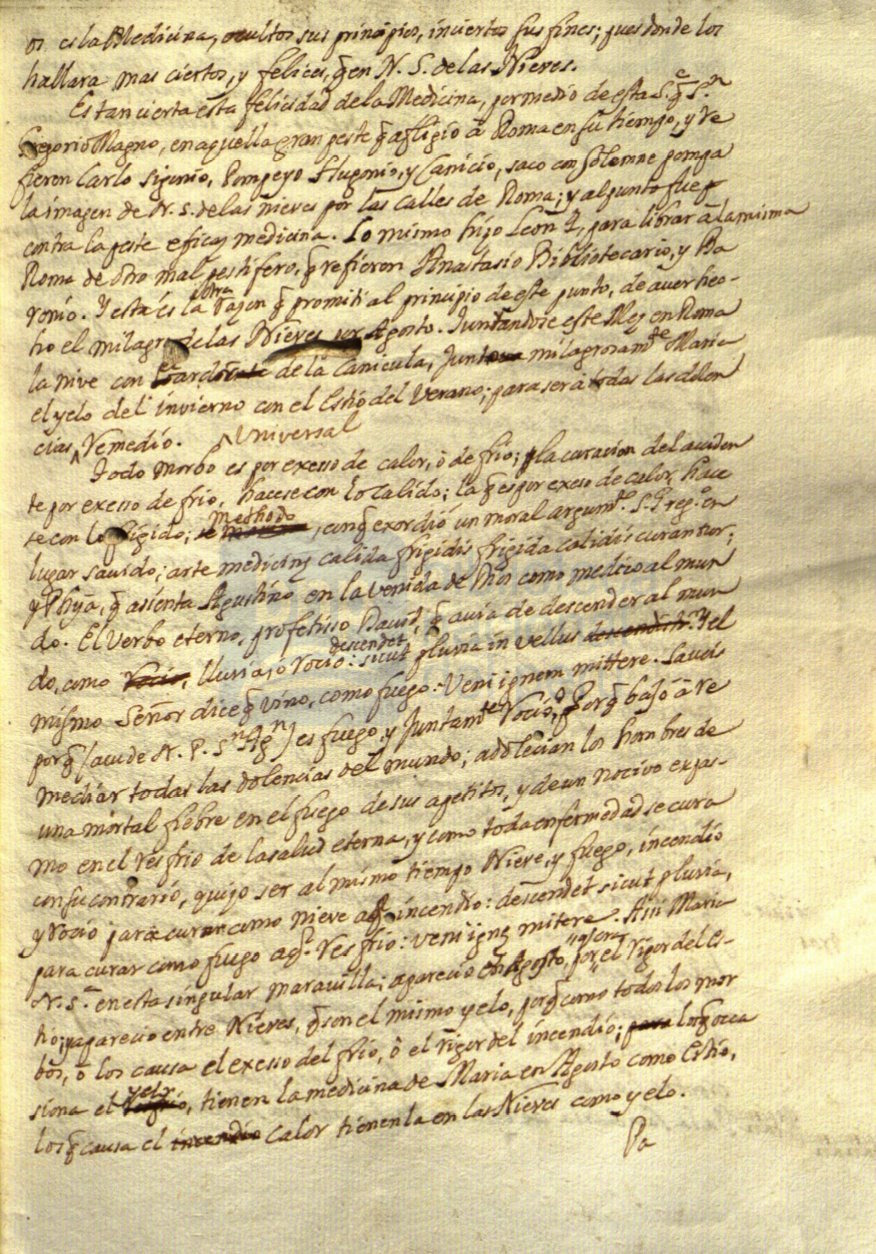 os es la Medicina, ocultos sus principios, inciertos sus fines; pues donde los
hallara mas ciertos, y felices, q̄ en N. S. de las Nieves.
Es tan cierta esta felicidad de la Medicina, por medio de esta S.ª q̄ S.n
Gregorio Magno, en aquella gran peste q̄ afligio â Roma en su tiempo, y re
fieren Carlo Sigonio, Pompeyo Hugonio, y Canicio, saco con solemne pompa
la imagen de N. S. de las nieves por las calles de Roma; y al punto fue
contra la peste eficaz medicina. Lo mismo hizo Leon 4, para librar â la misma
Roma de otro mal pestifero, q̄ refieren Anastasio Bibliotecario, y Ba
ronio. Y esta és la otra razon q̄ promiti al principio de este punto, de aver he-
ho el milagro de las Nieves por Agosto. Juntandose este Mes en Roma
la nive con de la Canicula, Junto milagrosam.te Maria
el yelo del invierno con el Estio del Verano; para ser â todas las dolen
cias, Remedio. Universal
Todo morbo es por exesso de calor, ò de frio; y la curacion del acciden
te por exesso de frio, hacese con lo calido; la q̄ es por exeso de calor, hace
se con lo frigido; methodo, con q̄ exordiò un moral argum.to S. Greg.o en
lugar savido; arte medicinę calida frigidis frigida calidis curantur;
y Phỹa, q̄ asienta Agustino en la venida de Dios como medico al mun
do. El Verbo eterno, profetisso David, q̄ avia de descender al mun
do, como Rocio, lluvia, ò rocio: descendet sicut pluvia in vellus descendit. Y el
mismo Señor dice q̄ vino, como fuego: Veni ignem mittere. Saveis
porq̄ (acude N. P. S.n Ag.n) es fuego, y juntam.te Rocio, porq̄ bajò â re
mediar todas las dolencias del mundo; adolecian los hombres de
una mortal fiebre en el fuego de sus apetitos, y de un nocivo expas-
mo en el resfrio de la salud eterna, y como toda enfermedad se cura
con su contrario, quiso ser al mismo tiempo Nieve, y fuego, incendio
y rocio para curar como nieve aq̄l incendio: descendet sicut pluvia,
para curar como fuego aq̄l resfrio: veni ignę mitere. Assi Maria
N. S.ª en esta singular maravilla; aparecio en Agosto, por el rigor del es-
tio; y aparecio entre Nieves, q̄ son el mismo yelo, porq̄ como todos los mor
bos, ò los causa el exesso del frio, ò el rigor del incendio; para los q̄ occa
siona el yelo, tienen la medicina de Maria en Agosto como Estio,
los q̄ causa el incendio calor tienenla en las Nieves como yelo.
Pa